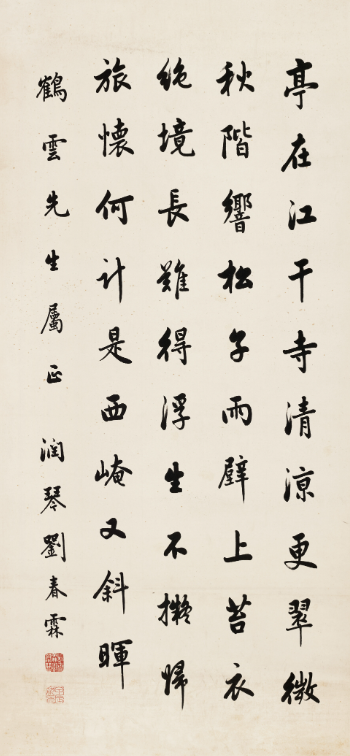 亭在江干寺清涼更翠微
秋階響松子雨壁上苔衣
絶境長難得浮生不擬歸
旅懷何計是西崦又斜暉
鶴雲先生屬正 潤琴劉春霖